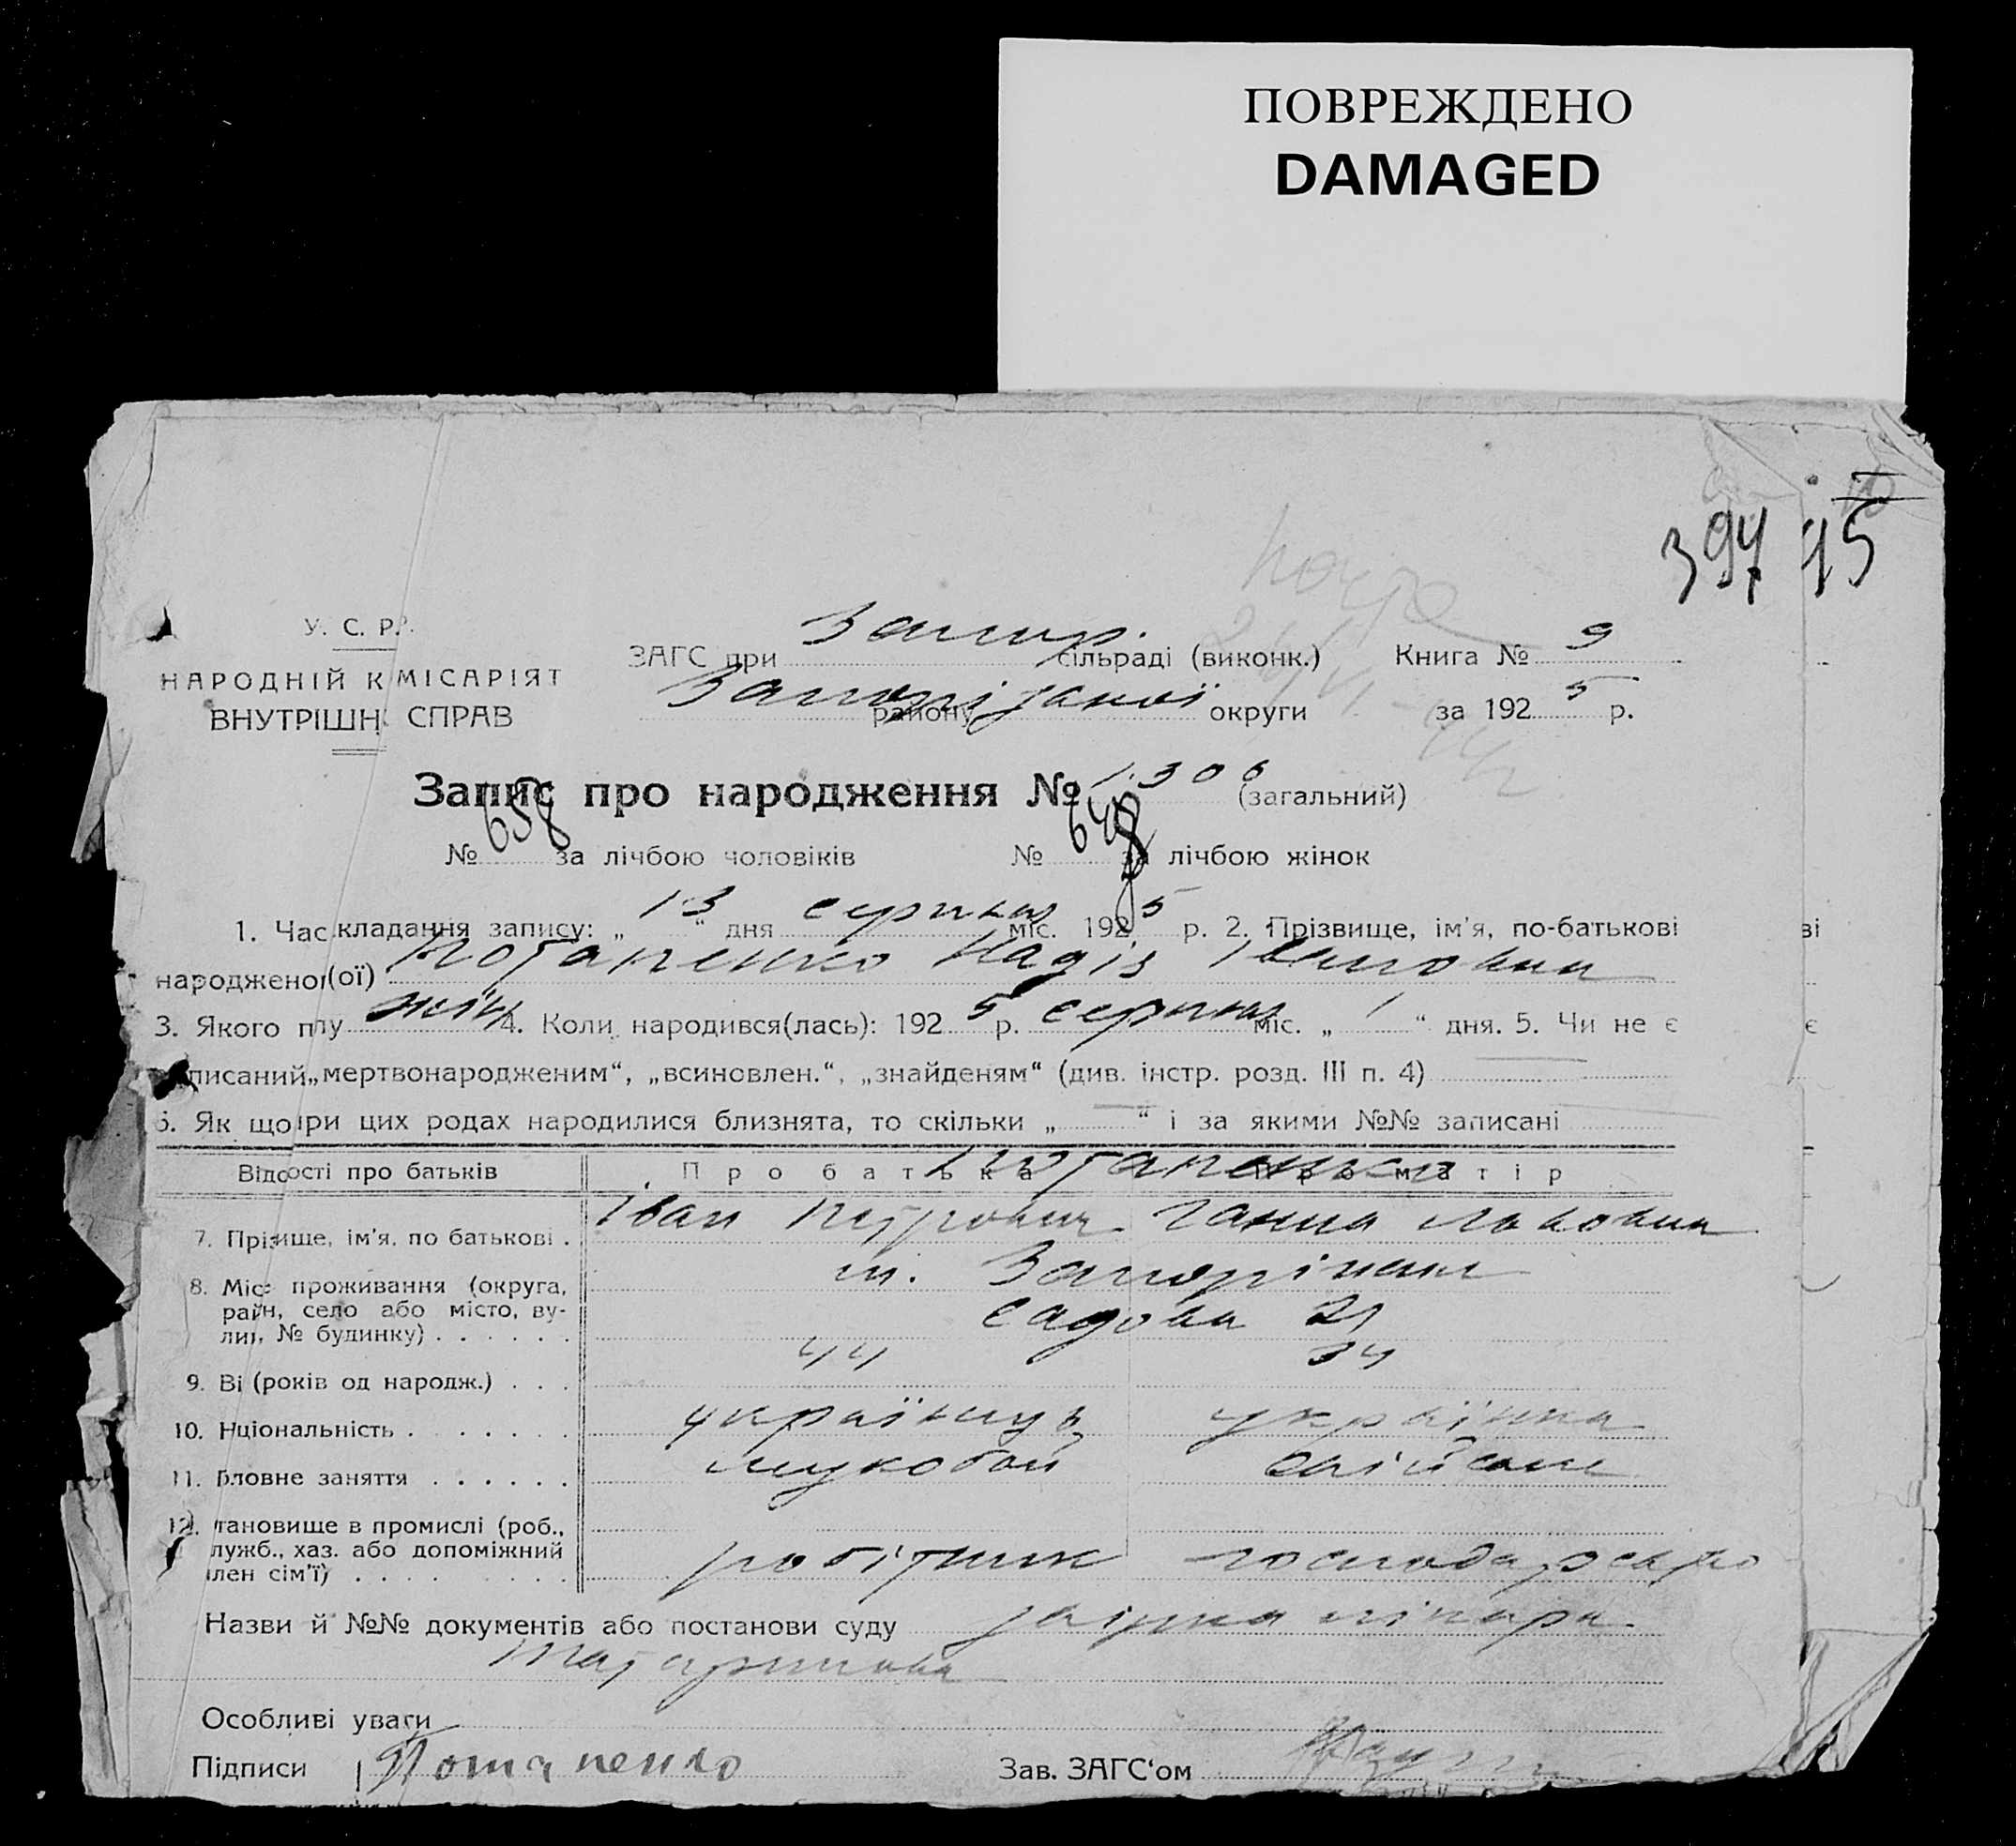 ПОВРЕЖДЕНО
DAMAGED
397 15
У. С. Р. Р.
НАРОДНІЙ К МІСАРІЯТ
ВНУТРІШН СПРАВ
ЗАГС при Запор. сільраді (виконк.) Книга № 9
Запорізької району округи за 1925 р.
Запис про народження № 1306 (загальний)
№ 658 за лічбою чоловіків № 648 за лічбою жінок
1. Час кладання запису: „13“ дня серпня міс. 1925 р. 2. Прізвище, ім'я, по-батькові ві
народжено (ої) Потапенко Надія Івановна
3. Якого п лу жін 4. Коли народився(лась): 1925 р. серпня міс. „1“ дня. 5. Чи не є є
писаний „мертвонародженим“, „всиновлен.“, „знайденям“ (див. інстр. розд. III п. 4)
6. Як що при цих родах народилися близнята, то скільки „ “ і за якими №№ записані
Відо ості про батьків Про батька Про матір
Потапенко
7. Пріз ище, ім'я, по батькові . Іван Петрович Ганна Яковівна
8. Міс проживання (округа, м. Запоріжжя
рай н, село або місто, ву-
ли , № будинку) . . . . . . Садова 21
9. Ві (років од народж.) . . . 44 34
10. Н ціональність . . . . . . . українець українка
11. Г ловне заняття . . . . . . мукобой хатнє
12. тановище в промислі (роб.,
лужб., хаз. або допоміжний
лен сім'ї) . . . . . . . . робітник господарство
Назви й №№ документів або постанови суду довідка лікаря
Особливі уваги
Підписи Потапенко Зав. ЗАГС'ом